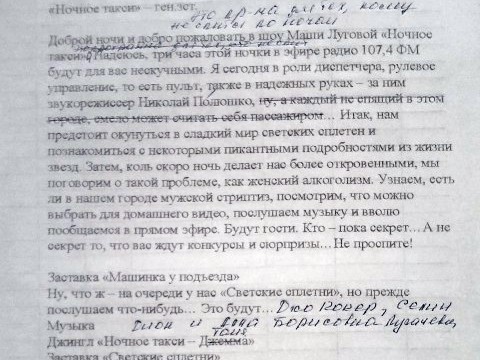 «Ночное такси» – ген.эст.
Это пр-ма для тех, кому
не спится по ночам
Доброй ночи и добро пожаловать в шоу Маши Луговой «Ночное
такси». Надеюсь, три часа этой ночки в эфире радио 107,4 ФМ
будут для вас нескучными. Я сегодня в роли диспетчера, рулевое
управление, то есть пульт, также в надежных руках – за ним
звукорежиссер Николай Полюшко, ну, а каждый не спящий в этом
городе, смело может считать себя пассажиром… Итак, нам
предстоит окунуться в сладкий мир светских сплетен и
познакомиться с некоторыми пикантными подробностями из жизни
звезд. Затем, коль скоро ночь делает нас более откровенными, мы
поговорим о такой проблеме, как женский алкоголизм. Узнаем, есть
ли в нашем городе мужской стриптиз, посмотрим, что можно
выбрать для домашнего видео, послушаем музыку и вволю
пообщаемся в прямом эфире. Будут гости. Кто – пока секрет… А не
секрет то, что вас ждут конкурсы и сюрпризы… Не проспите!
Заставка «Машинка у подъезда»
Ну, что ж – на очереди у нас «Светские сплетни», но прежде
послушаем что-нибудь… Это будут… Джо Кокер, Селин
Музыка Дион и Алла Борисовна Пугачева,
Джингл «Ночное такси – Джемма»
Заставка «Светские сплетни»